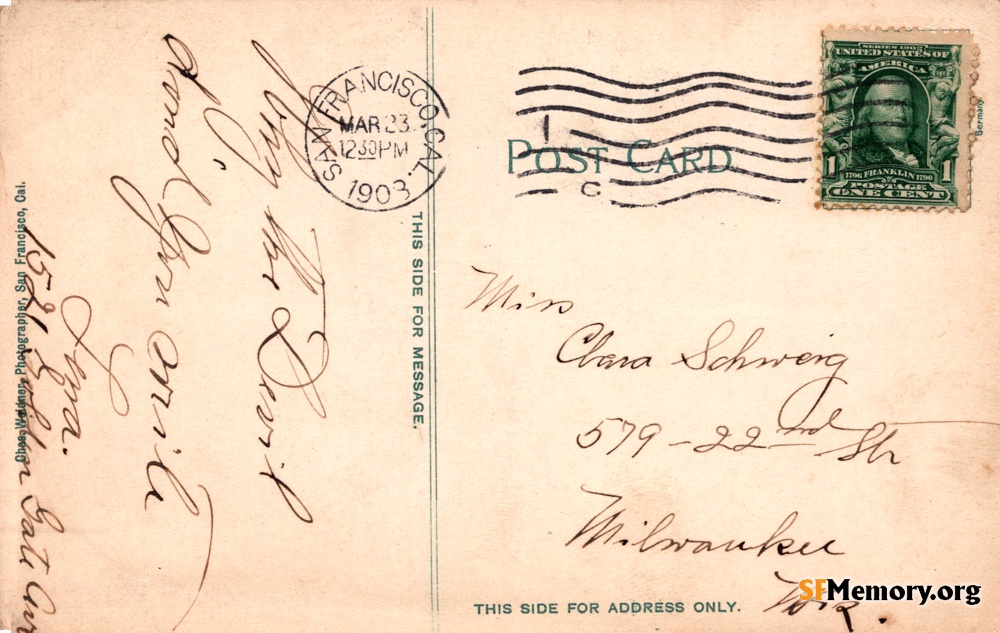 Why the Devil
Don't you write
Lena.
1521 Golden Gate Ave
Chas. Weidner, Photographer, San Francisco, Cal.
THIS SIDE FOR MESSAGE.
SAN FRANCISCO, CAL.
MAR 23
12 30 PM
1903
POST CARD
C
SERIES 1902
UNITED STATES OF
AMERICA
1706 FRANKLIN 1790
1 POSTAGE 1
ONE CENT
Germany
Miss
Clara Schweig
579-22nd Str
Milwaukee
Wis.
THIS SIDE FOR ADDRESS ONLY.
SFMemory.org